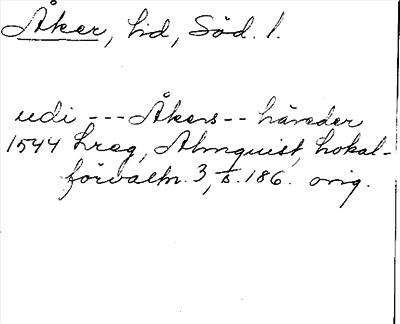 Åker, hd, Söd. l.
udi --- Åkers -- häreder
1544 hreg, Almquist, Lokal-
förvaltn. 3, s. 186. orig.